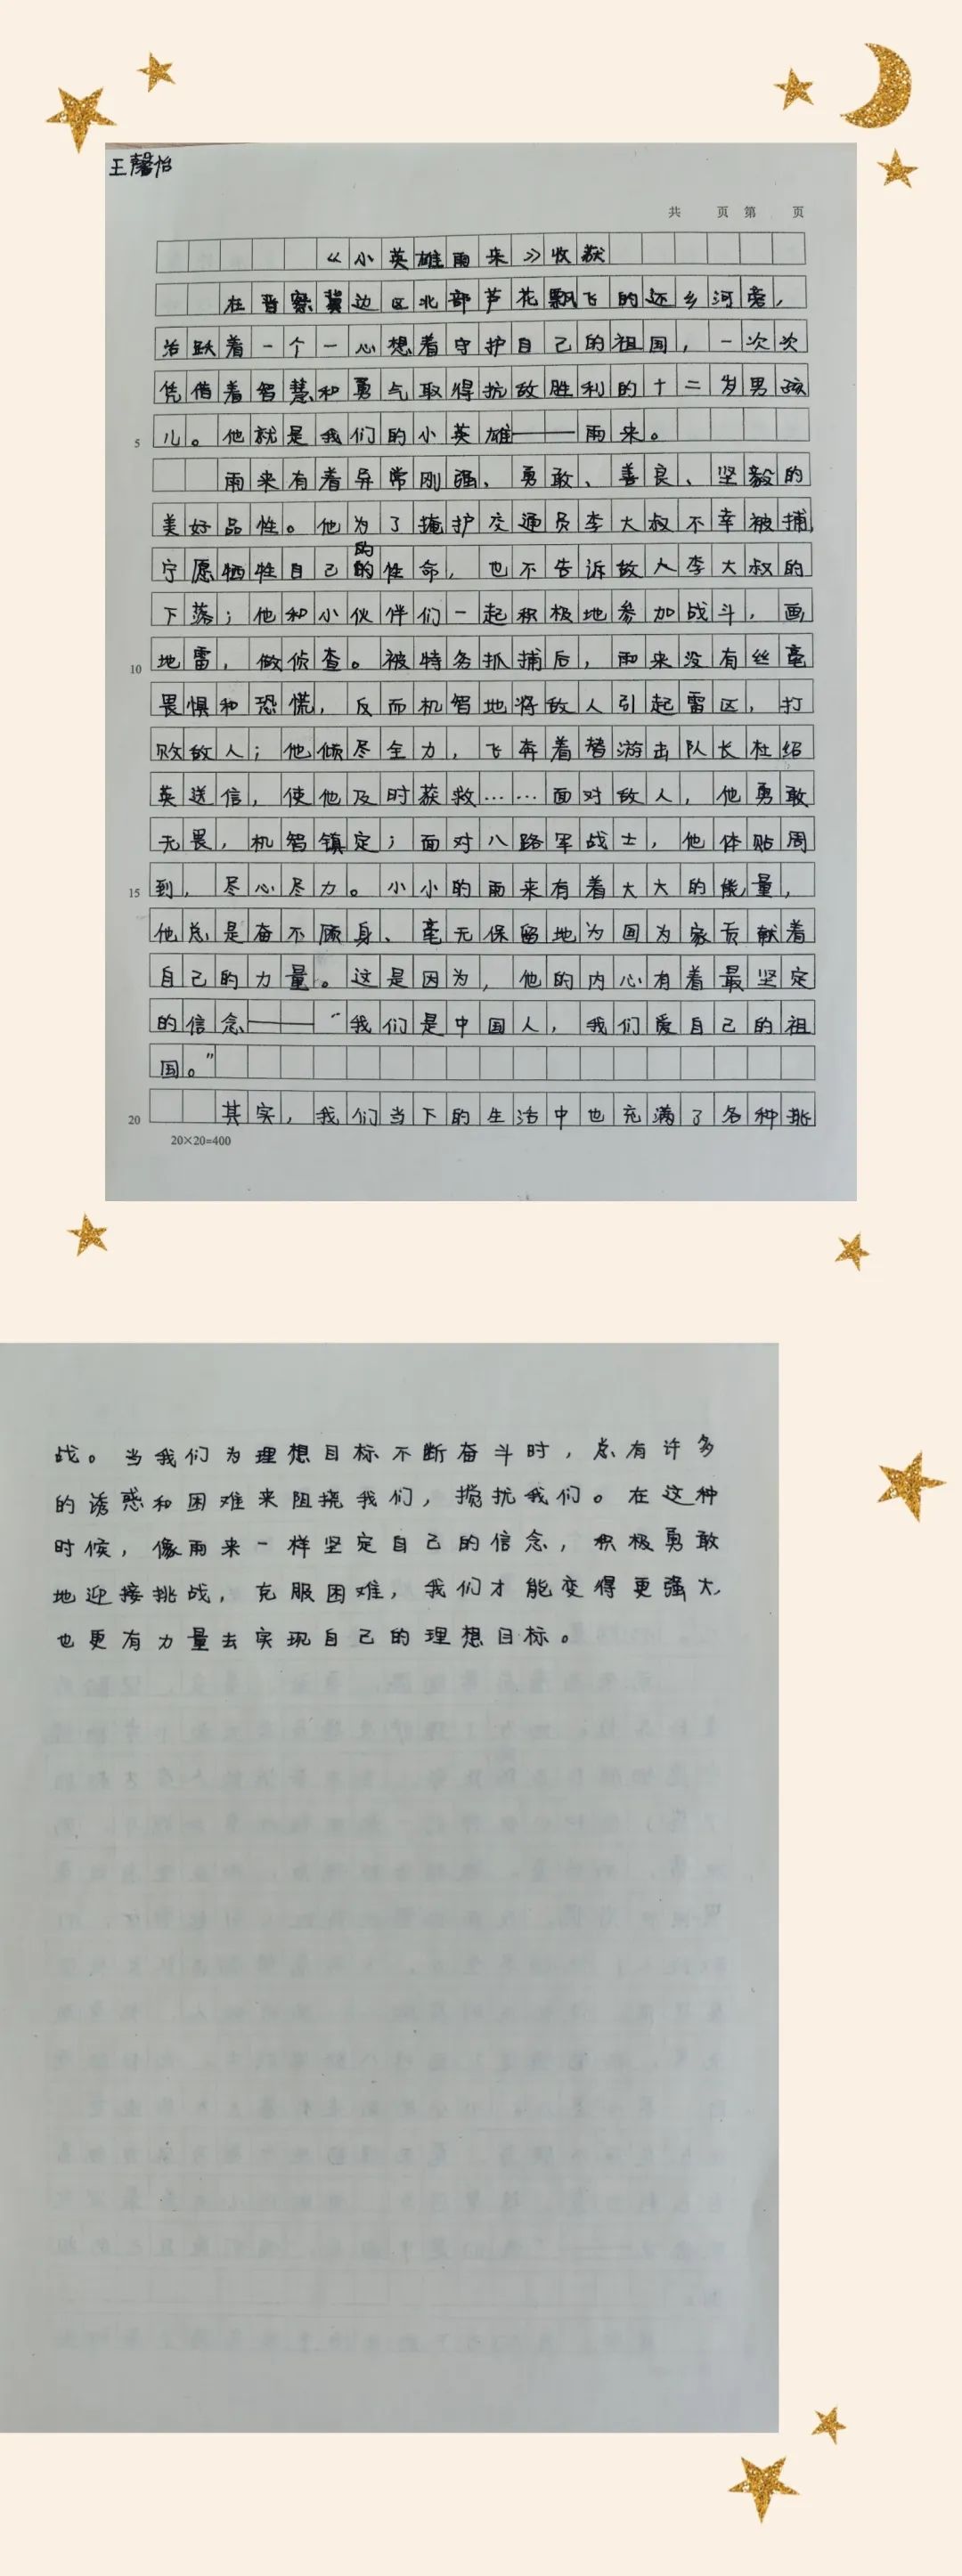 王馨怡
共 页 第 页
《小英雄雨来》收获
在晋察冀边区北部芦花飘飞的还乡河旁，
活跃着一个一心想着守护自己的祖国，一次次
凭借着智慧和勇气取得抗敌胜利的十二岁男孩
5 儿。他就是我们的小英雄——雨来。
雨来有着异常刚强、勇敢、善良、坚毅的
美好品性。他为了掩护交通员李大叔不幸被捕，
宁愿牺牲自己的性命，也不告诉敌人李大叔的
下落；他和小伙伴们一起积极地参加战斗，画
10 地雷，做侦查。被特务抓捕后，雨来没有丝毫
畏惧和恐慌，反而机智地将敌人引起雷区，打
败敌人；他倾尽全力，飞奔着替游击队长杜绍
英送信，使他及时获救……面对敌人，他勇敢
无畏，机智镇定；面对八路军战士，他体贴周
15 到，尽心尽力。小小的雨来有着大大的能量，
他总是奋不顾身、毫无保留地为国为家贡献着
自己的力量。这是因为，他的内心有着最坚定
的信念——“我们是中国人，我们爱自己的祖
国。”
20 其实，我们当下的生活中也充满了各种挑
20×20=400
战。当我们为理想目标不断奋斗时，总有许多
的诱惑和困难来阻挠我们，搅扰我们。在这种
时候，像雨来一样坚定自己的信念，积极勇敢
地迎接挑战，克服困难，我们才能变得更强大，
也更有力量去实现自己的理想目标。